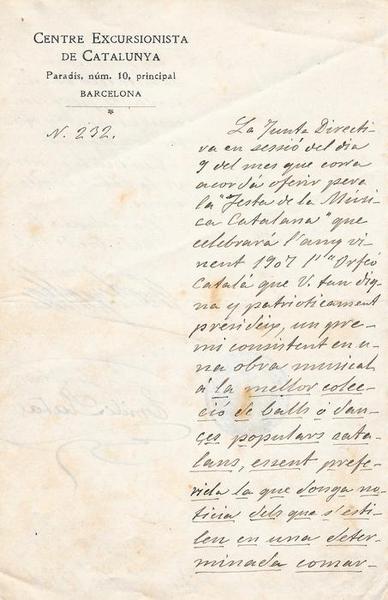 CENTRE EXCURSIONISTA
DE CATALUNYA
Paradís, núm. 10, principal
BARCELONA
N. 232.
La Junta Directi
va en sessió del dia
9 del mes que corra
acordá oferir pera
la "Festa de la Músi
ca Catalana" que
celebrará l'any vi
nent 1907 l'"Orfeó
Catalá que V. tan dig
na y patrioticament
presideix, un pre
mi consistent en u
na obra musical
a la mellor colec
ció de balls ó dan
çes populars cata
lans, essent prefe
rida la que donga no
ticia dels que s'esti
len en una deter
minada comar-